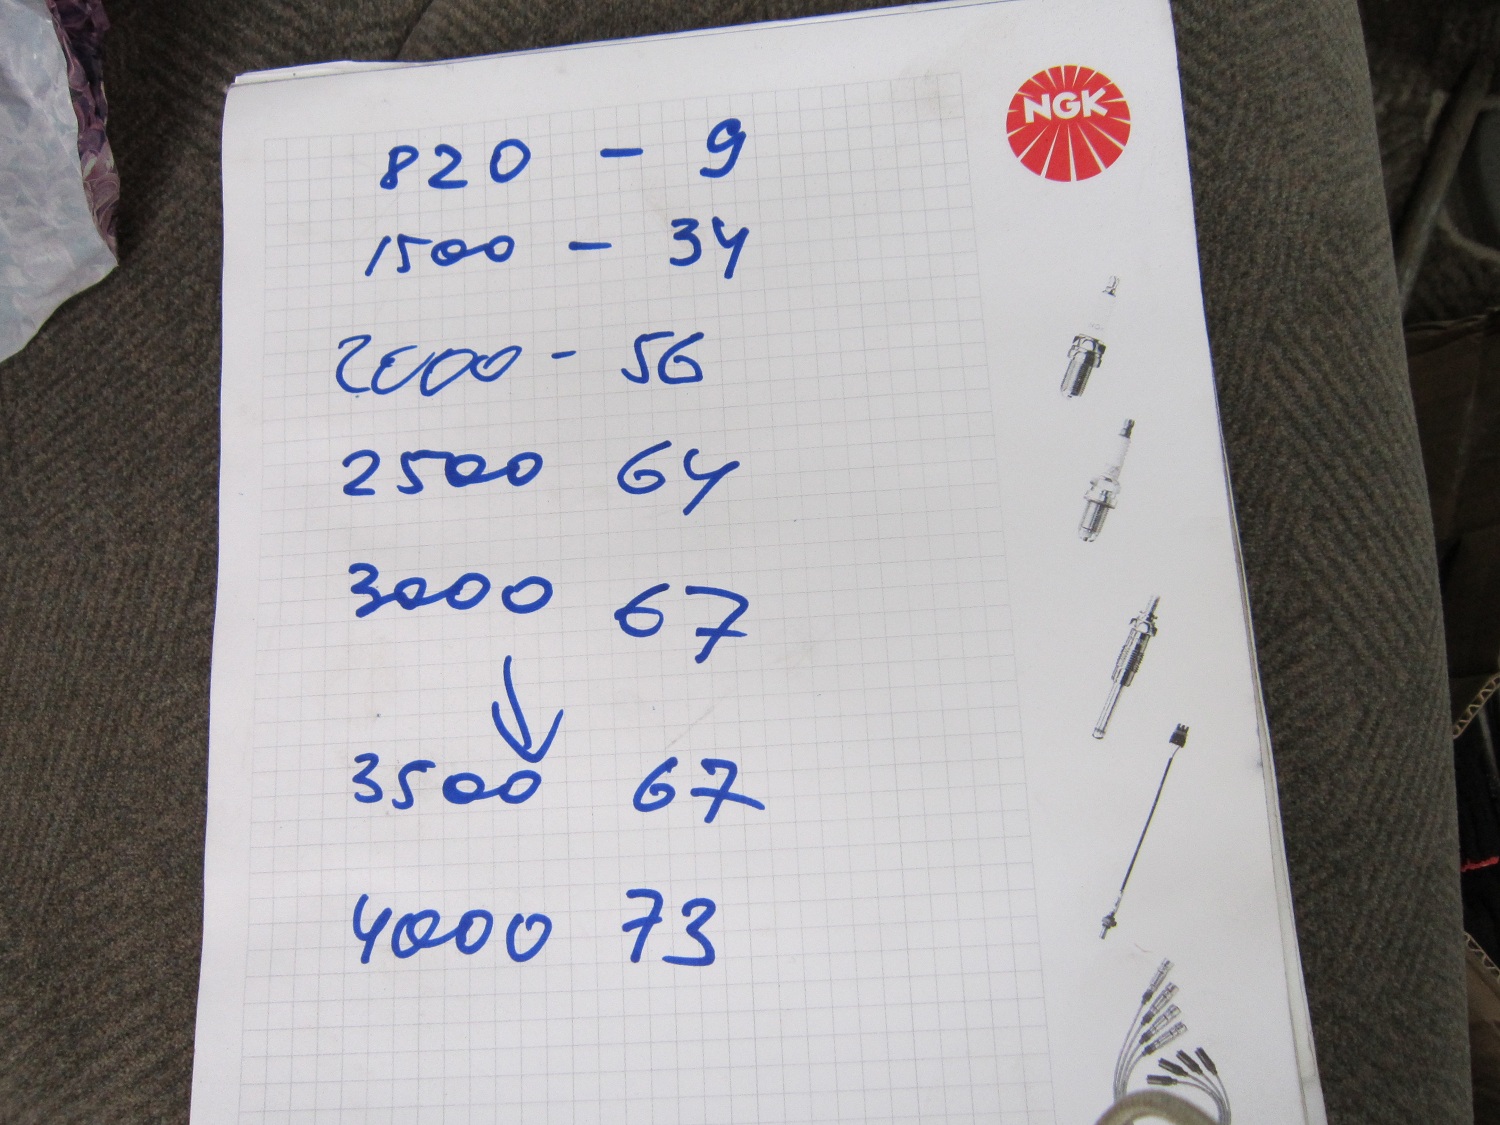 NGK
820 - 9
1500 - 34
2000 - 56
2500 64
3000 67
3500 67
4000 73